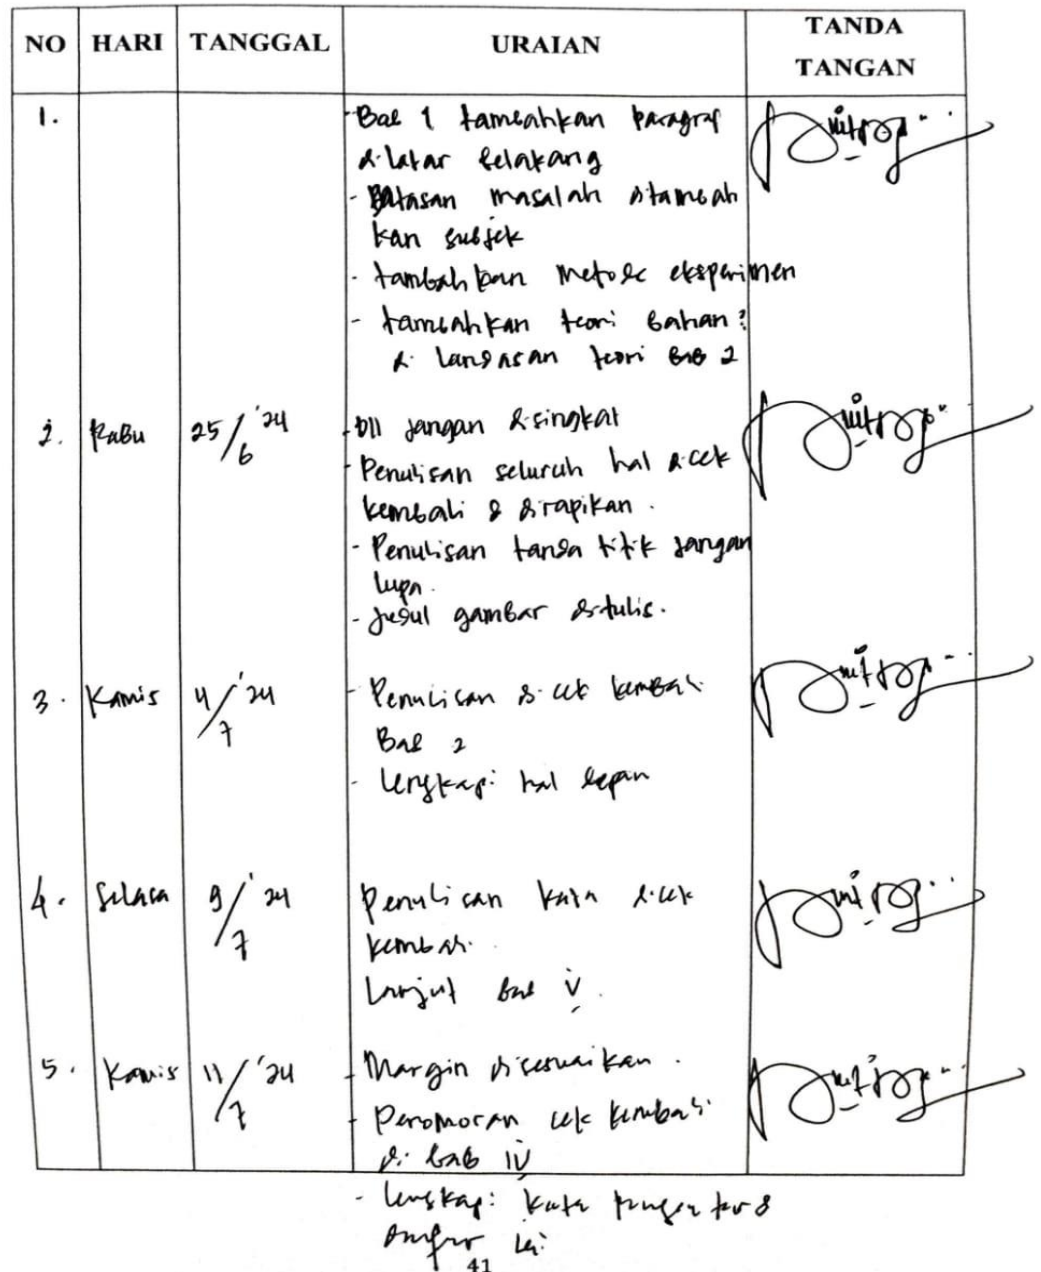 NO HARI TANGGAL URAIAN TANDA TANGAN
1.
- Bab 1 tambahkan paragraf
di latar belakang
- Batasan masalah ditambah
kan subjek
- tambahkan metode eksperimen
- tambahkan teori bahan²
di landasan teori Bab 2
2. Rabu 25/6 '24
- Dll jangan disingkat
- Penulisan seluruh hal dicek
kembali & dirapikan.
- Penulisan tanda titik jangan
lupa.
- Judul gambar ditulis.
3. Kamis 4/7 '24
- Penulisan dicek kembali
Bab 2
- Lengkapi hal depan
4. Selasa 9/7 '24
Penulisan kata dicek
kembali.
Lanjut bab V.
5. Kamis 11/7 '24
- Margin disesuaikan.
- Penomoran cek kembali
di bab IV
- Lengkapi kata pengantar &
41